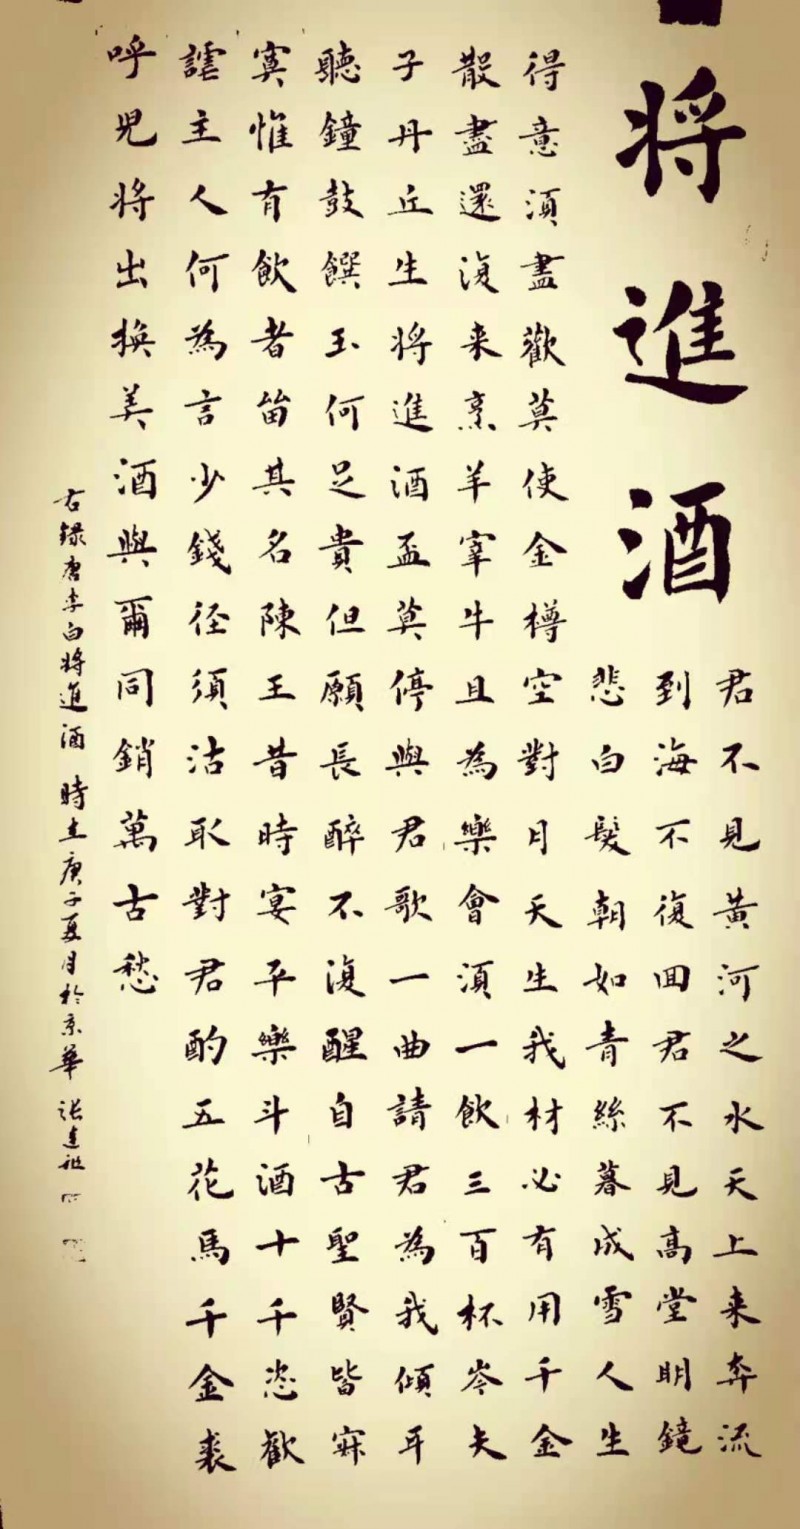 将進酒
君不見黃河之水天上来奔流
到海不復回君不見高堂明鏡
悲白髮朝如青絲暮成雪人生
得意須盡歡莫使金樽空對月天生我材必有用千金
散盡還復来烹羊宰牛且為樂會須一飲三百杯岑夫
子丹丘生将進酒盃莫停與君歌一曲請君為我傾耳
聽鐘鼓饌玉何足貴但願長醉不復醒自古聖賢皆寂
寞惟有飲者留其名陳王昔時宴平樂斗酒十千恣歡
謔主人何為言少錢径須沽取對君酌五花馬千金裘
呼兒将出換美酒與爾同銷萬古愁
右錄唐李白将進酒 時在庚子夏月於京華 張